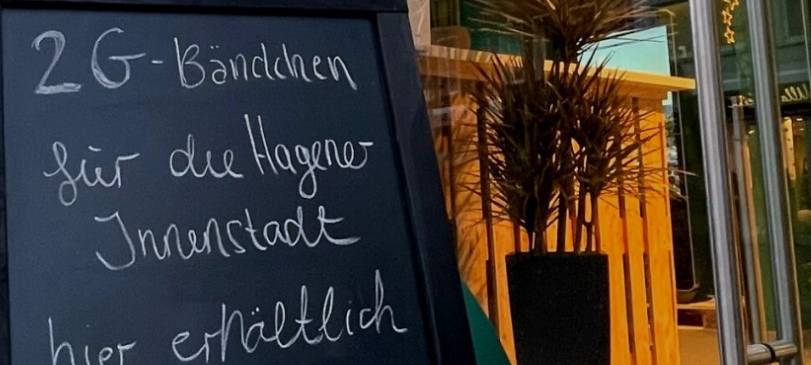 2G-Bändchen
für die Hagener
Innenstadt
hier erhältlich